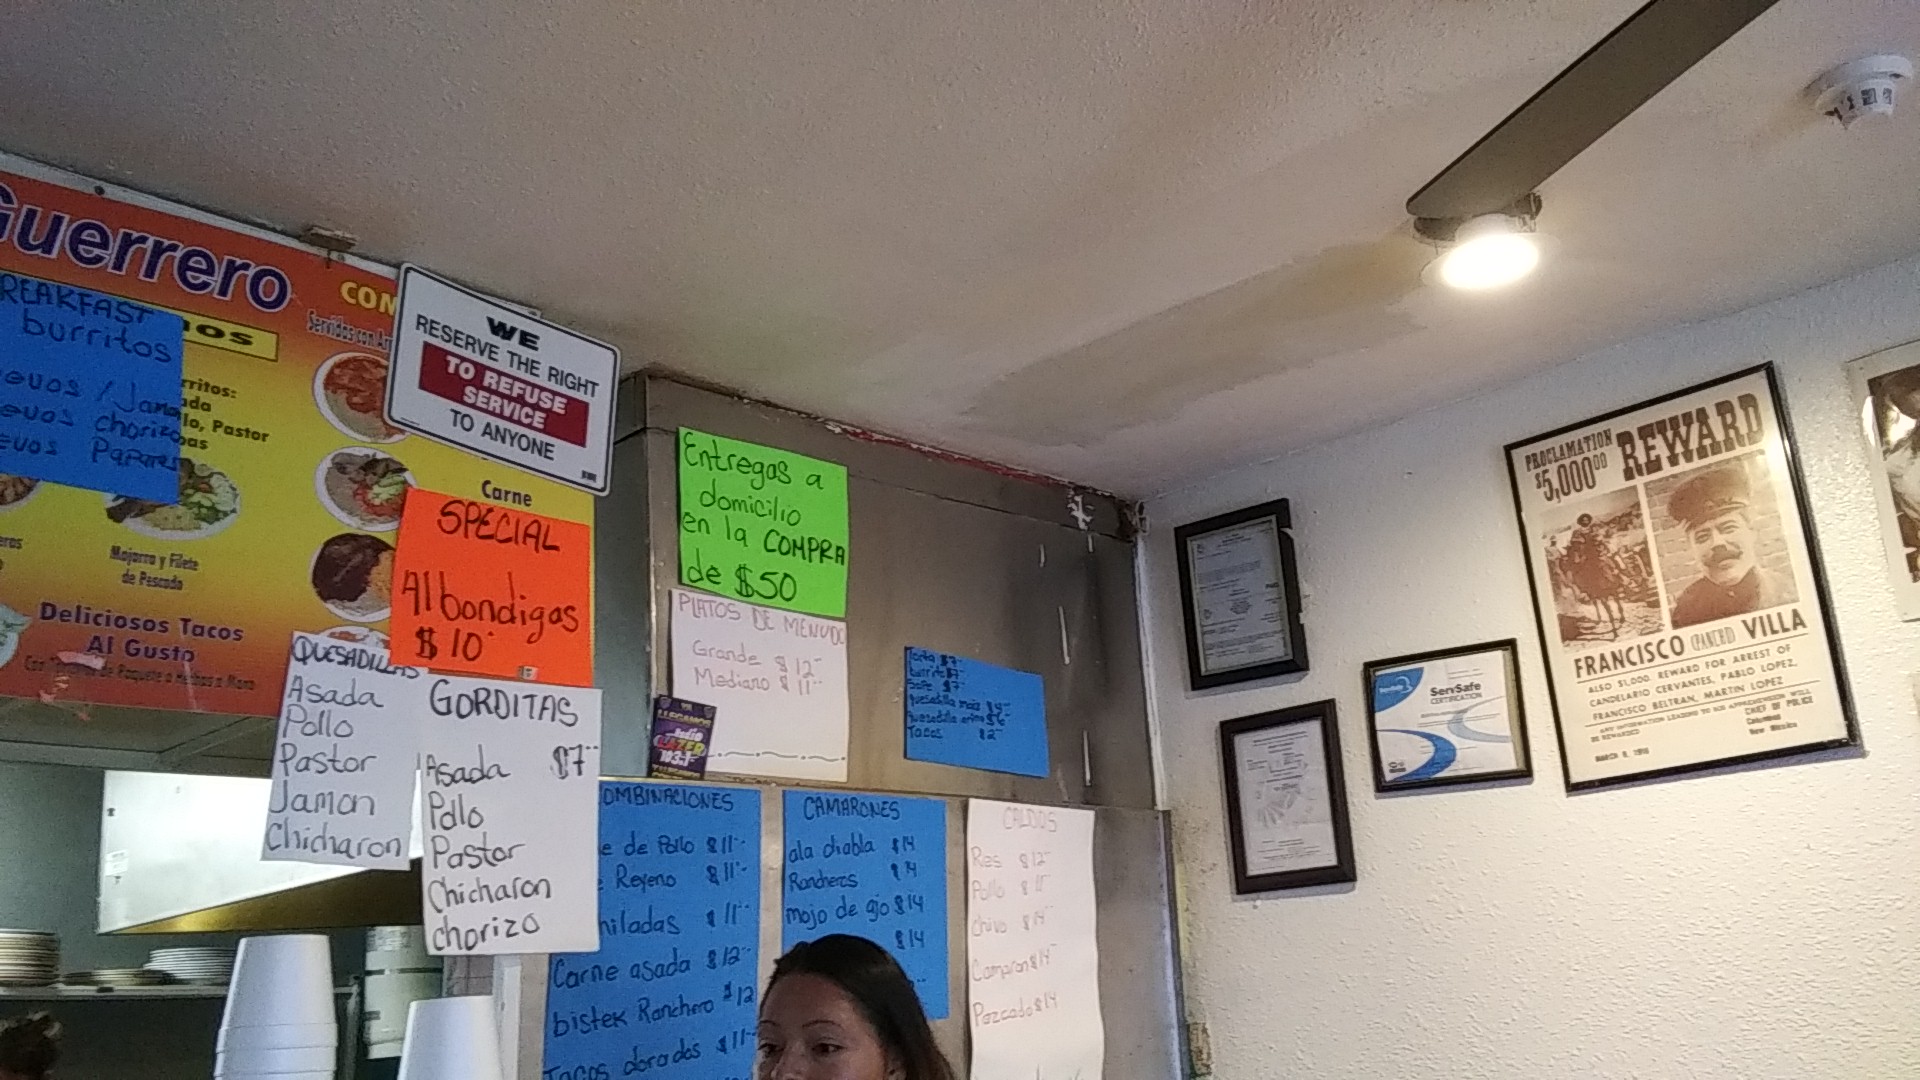 Guerrero
BREAKFAST
burritos
/Jamon
chorizo
Papares
Pastor
COM
Mojarra y Filete
de Pescado
Deliciosos Tacos
Al Gusto
Carne
WE
RESERVE THE RIGHT
TO REFUSE
SERVICE
TO ANYONE
SPECIAL
Albondigas
$10
QUESADILLAS
Asada
Pollo
Pastor
Jamon
Chicharon
GORDITAS
Asada $7
Pollo
Pastor
Chicharon
chorizo
Entregas a
domicilio
en la COMPRA
de $50
PLATOS DE MENUDO
Grande $12
Mediano $11
YA
LLEGAMOS
Radio
LAZER
103.1
torta $7
burrito $7
Sope $7
quesadilla maiz $4
quesadilla arina $6
Tacos $2
OMBINACIONES
e de Pollo $11
Reyeno $11
hiladas $11
Carne asada $12
bistek Ranchero $12
Tacos dorados $11
CAMARONES
ala diabla $14
Rancheros $14
mojo de ajo $14
$14
CALDOS
Res $12
Pollo $11
Chivo $14
Camaron $14
Pazcado $14
ServSafe
CERTIFICATION
PROCLAMATION
$5,000.00 REWARD
FRANCISCO (PANCHO) VILLA
ALSO $1,000. REWARD FOR ARREST OF
CANDELARIO CERVANTES, PABLO LOPEZ,
FRANCISCO BELTRAN, MARTIN LOPEZ
ANY INFORMATION LEADING TO HIS APPREHENSION WILL
BE REWARDED
CHIEF OF POLICE
Columbus
New Mexico
MARCH 9, 1916